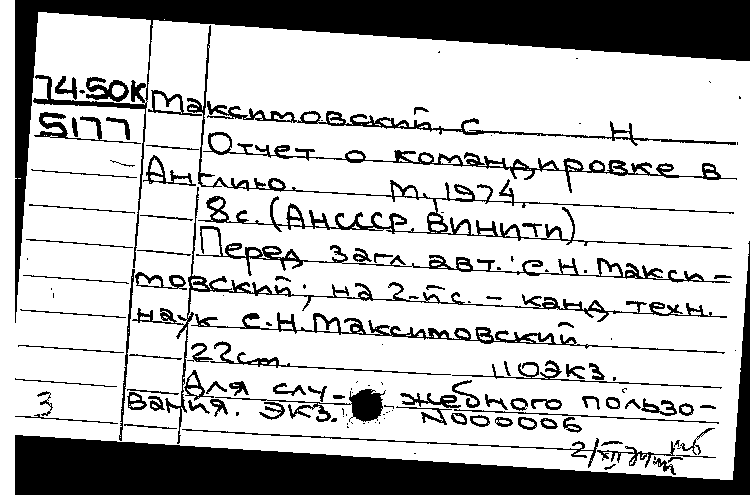 74-50К Максимовский, С Н
5177 Отчет о командировке в
Англию. М., 1974.
8с. (АНСССР. ВИНИТИ).
Перед загл. авт.: С.Н. Макси=
мовский; на 2-й с. - канд. техн.
наук С.Н. Максимовский.
22cm. 110экз.
Для слу- жебного пользо-
3 вания. экз. N000006
2/XII